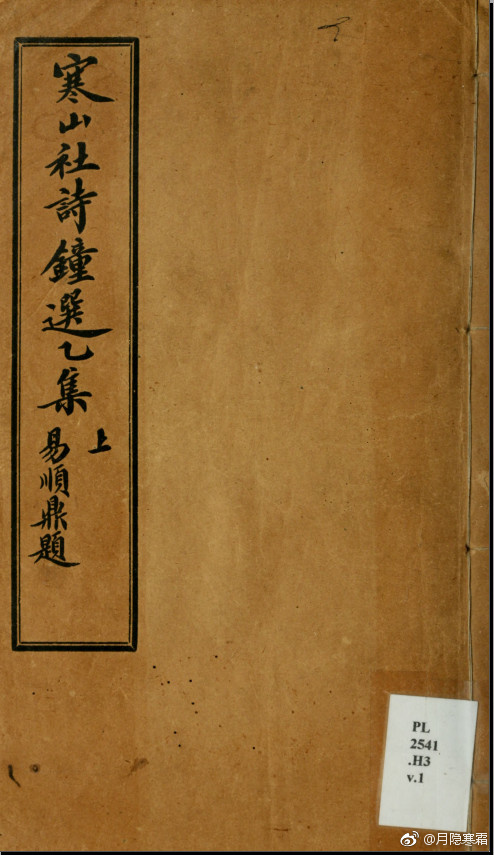 寒山社詩鐘選乙集
上
易順鼎題
PL
2541
.H3
v.1
@月隐寒霜